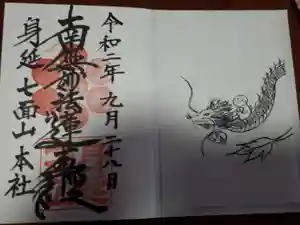 令和二年 九月 二十八日
南無妙法蓮華経
身延 七面山 本社